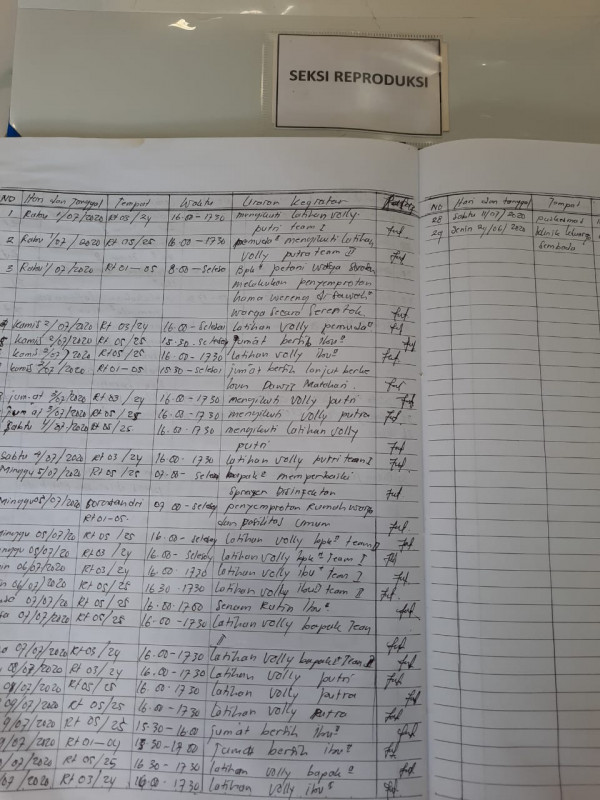 SEKSI REPRODUKSI
NO Hari dan Tanggal Tempat Waktu Uraian Kegiatan
1 Rabu 1/07/2020 Rt 03/24 16.00-1730 mengikuti latihan volly
putri team I
2 Rabu 1/07/2020 Rt 05/25 16.00-1730 pemuda² mengikuti latihan
volly putra team II
3 Rabu 1/07/2020 Rt 01-05 8.00-Selesai Bpk² petani warga
melakukan penyemprotan
hama wereng di sawah²
warga secara serentak
Kamis 2/07/2020 Rt 03/24 16.00-Selesai Latihan volly pemuda²
Kamis 2/07/2020 Rt 05/25 15.30- Jumat bersih ibu²
Kamis 2/07/2020 Rt 05/25 16.00-17.30 Latihan volly ibu²
Kamis 2/07/2020 Rt 01-05 15.30-Selesai jum'at bersih lanjut
Dawis Matahari
jum'at 3/07/2020 Rt 03/24 16.00-17.30 mengikuti volly putri
Jum'at 3/07/2020 Rt 05/25 16.00-17.30 mengikuti volly putra
Sabtu 4/07/2020 Rt 05/25 16.00-17.30 mengikuti latihan volly
putri
Sabtu 4/07/2020 Rt 03/24 16.00-17.30 latihan volly putri team I
Minggu 5/07/2020 Rt 05/25 07.00-Selesai bapak² memperbaiki
Sprayer Disinfektan
Minggu 05/07/2020 07.00-Selesai penyemprotan Rumah warga
Rt 01-05. dan fasilitas umum
minggu 05/07/2020 Rt 05/25 16.00-Selesai Latihan volly bpk² team II
05/07/2020 Rt 03/24 16.00-Selesai latihan volly bpk² Team I
06/07/2020 Rt 03/24 16.00-17.30 latihan volly ibu² team I
06/07/2020 Rt 05/25 16.30-17.30 latihan volly ibu² team II
07/07/2020 Rt 05/25 16.00-17.00 Senam Rutin ibu²
07/07/2020 Rt 05/25 16.00-17.30 Latihan volly bapak Team
II
07/07/2020 Rt 03/24 16.00-17.30 Latihan volly bapak² Team I
08/07/2020 Rt 03/24 16.00-17.30 Latihan volly putri
08/07/2020 Rt 05/25 16.00-17.30 Latihan volly putra
09/07/2020 Rt 05/25 16.00-17.30 Latihan volly putra
9/07/2020 Rt 05/25 15.30-16.00 Jumat bersih ibu²
/07/2020 Rt 01-04 15.30-17.00 Jumat bersih ibu²
/07/2020 Rt 05/25 16.30-17.30 latihan volly bapak²
/07/2020 Rt 03/24 16.00-17.30 latihan volly ibu²
NO Hari dan tanggal Tempat
28 Sabtu 11/07/2020 puskesmas
29 Senin 29/06/2020 klinik keluarga
Sembada